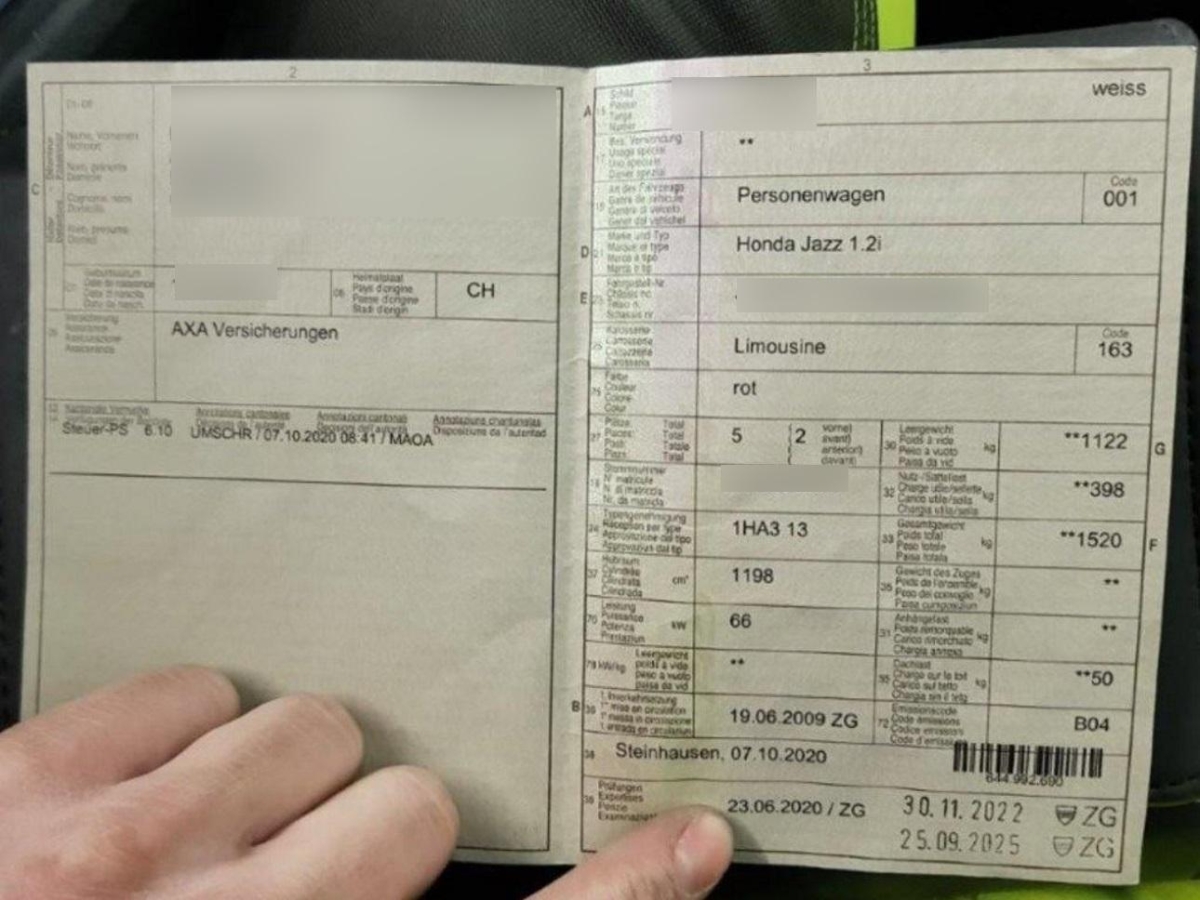 2
C
Name, Vornamen
Nom, prénoms
Domicile
Cognome, nomi
Domicilio
Num, prenums
Domicil
Geburtsdatum
Date de naissance
Data di nascita
Data da nasch.
Heimatstaat
Pays d'origine
Paese d'origine
Stadi d'origin
CH
Versicherung
Assurance
Assicurazione
Assicuranza
AXA Versicherungen
Annotations cantonales
Annotazioni cantonali
Annotaziuns chantunalas
Disposiziuns da l'autoritad
Steuer-PS 6.10 UMSCHR / 07.10.2020 08:41 / MAOA
3
A 15
Schild
Plaque
Targa
Numer
weiss
17
Bes. Verwendung
Usage spécial
Uso speciale
Diever spezial
**
19
Art des Fahrzeugs
Genre de véhicule
Genere di veicolo
Gener dal vehichel
Personenwagen
Code
001
D 21
Marke und Typ
Marque et type
Marca e tipo
Marca e tip
Honda Jazz 1.2i
E 23
Fahrgestell-Nr.
Châssis no.
Telaio n.
Schassis nr.
25
Karosserie
Carrosserie
Carrozzeria
Carossaria
Limousine
Code
163
26
Farbe
Couleur
Colore
Colur
rot
27
Plätze: Total
Places: Total
Posti: Totale
Plazs: Total
5
2
vorne)
avant)
anteriori)
davant)
30
Leergewicht
Poids à vide
Peso a vuoto
Paisa da vid
kg
**1122
G
18
Stammnummer
N° matricule
N. di matricola
Nr. da matricla
32
Nutz-/Sattellast
Charge utile/sellette
Carico utile/sella
Chargia utila/sella
kg
**398
24
Typengenehmigung
Réception par type
Approvazione del tipo
Approvaziun dal tip
1HA3 13
33
Gesamtgewicht
Poids total
Peso totale
Paisa totala
kg
**1520
F
37
Hubraum
Cylindrée
Cilindrata
Cilindrada
cm³
1198
35
Gewicht des Zuges
Poids de l'ensemble
Peso del convoglio
Paisa cumposiziun
kg
**
76
Leistung
Puissance
Potenza
Prestaziun
kW
66
31
Anhängelast
Poids remorquable
Carico rimorchiato
Chargia annexa
kg
**
78 kW/kg
Leergewicht
poids à vide
peso a vuoto
paisa da vid
**
55
Dachlast
Charge sur le toit
Carico sul tetto
Chargia sin il tetg
kg
**50
B 36
1. Inverkehrsetzung
1re mise en circulation
1a messa in circolazione
1. entrada en circulaziun
19.06.2009 ZG
72
Emissionscode
Code émissions
Codice emissioni
Code d'emissiun
B04
38
Steinhausen, 07.10.2020
644.992.690
39
Prüfungen
Expertises
Perizie
Examinaziuns
23.06.2020 / ZG
30.11.2022 ZG
25.09.2025 ZG